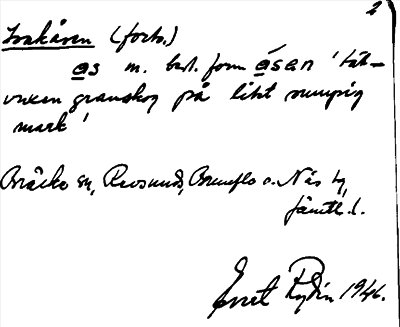 2
(forts.)
as m. best. form åsan 'tät-
vuxen granskog på likt sumpig
mark'
Bräcke sn, Revsunds, Brunflo o. Näs tg,
Jämtl. l.
Rydin 1946.